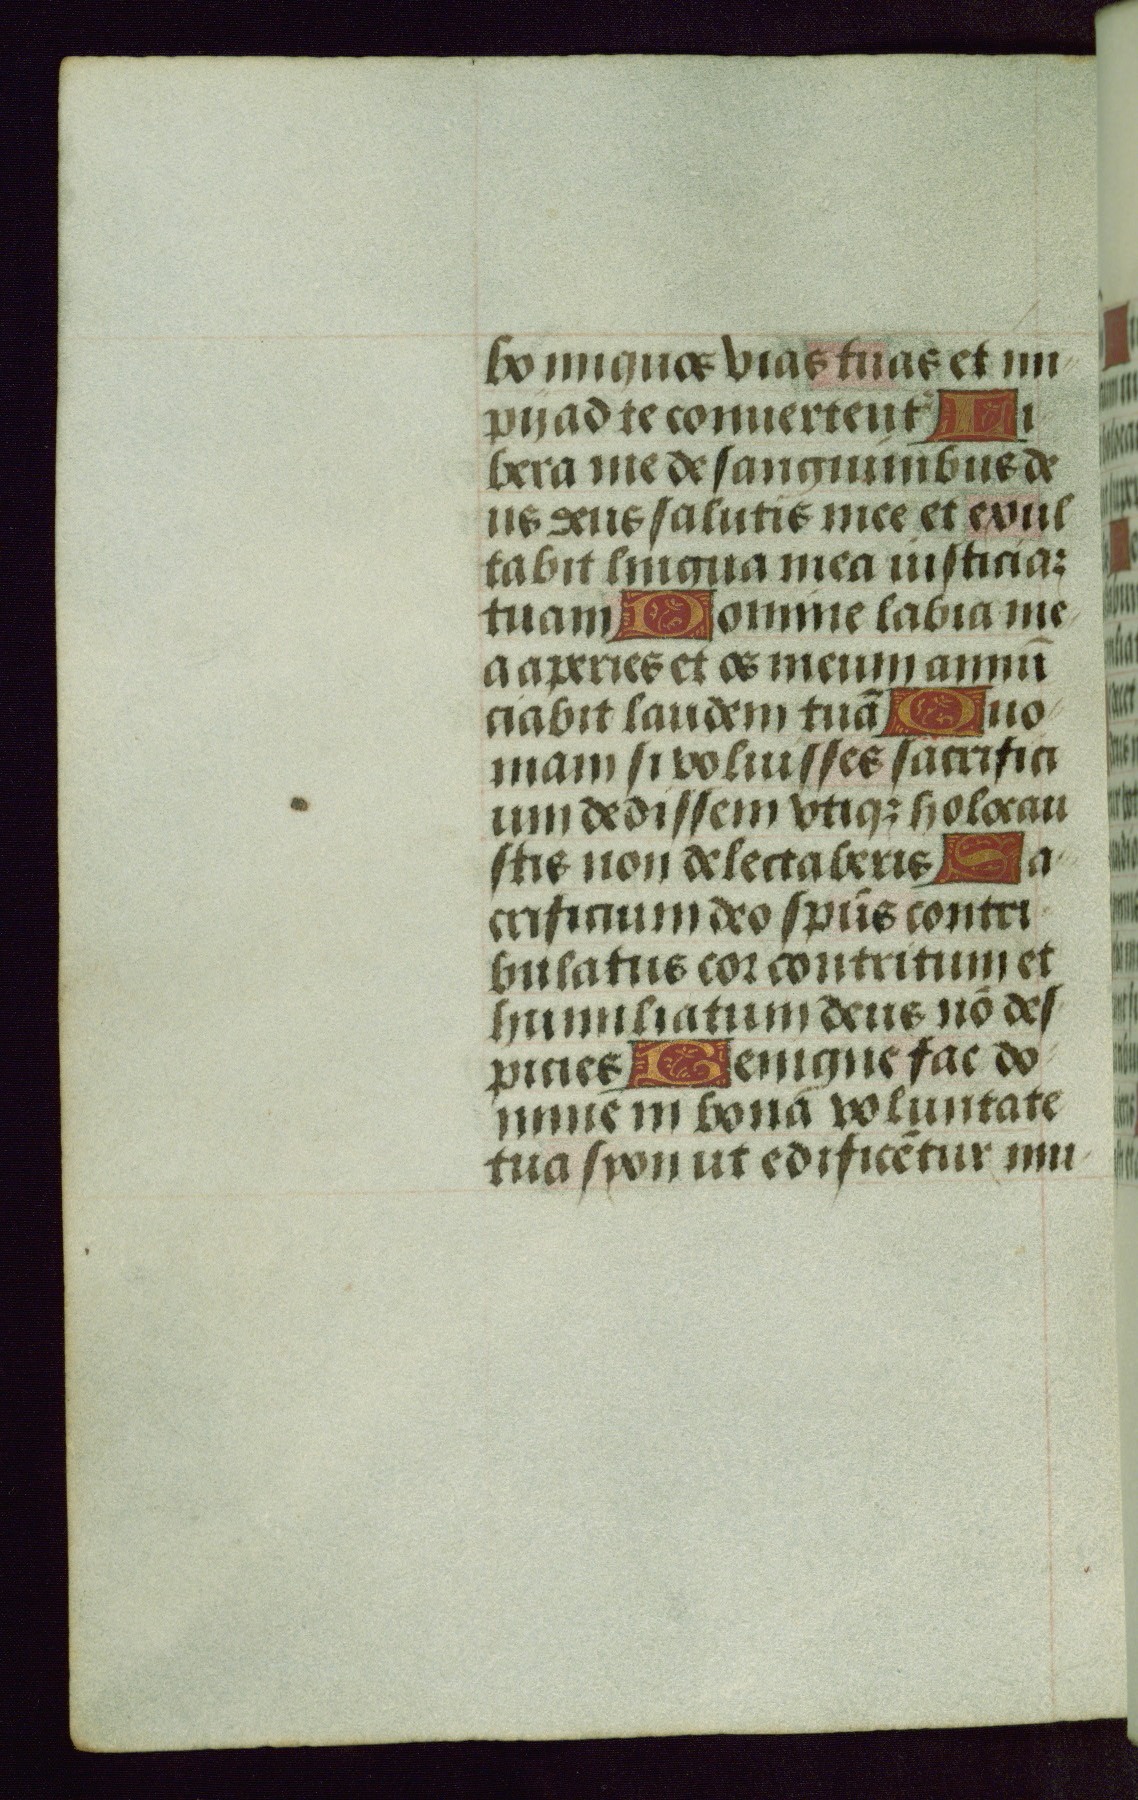 bo iniquos vias tuas et im
pij ad te conuertent᷑ Li
bera me de sanguinibus de
us deus salutis mee et exul
tabit lingua mea iusticiaꝫ
tuam Domine labia me
a aperies et os meum annũ
ciabit laudem tuã Quo
niam si voluisses sacrifici
um dedissem vtiqꝫ holocau
stis non delectaberis Sa
crificium deo spũs contri
bulatus cor contritum et
humiliatum deus nõ des
picies Benigne fac do
mine in bonã voluntate
tua syon ut edificẽtur mu